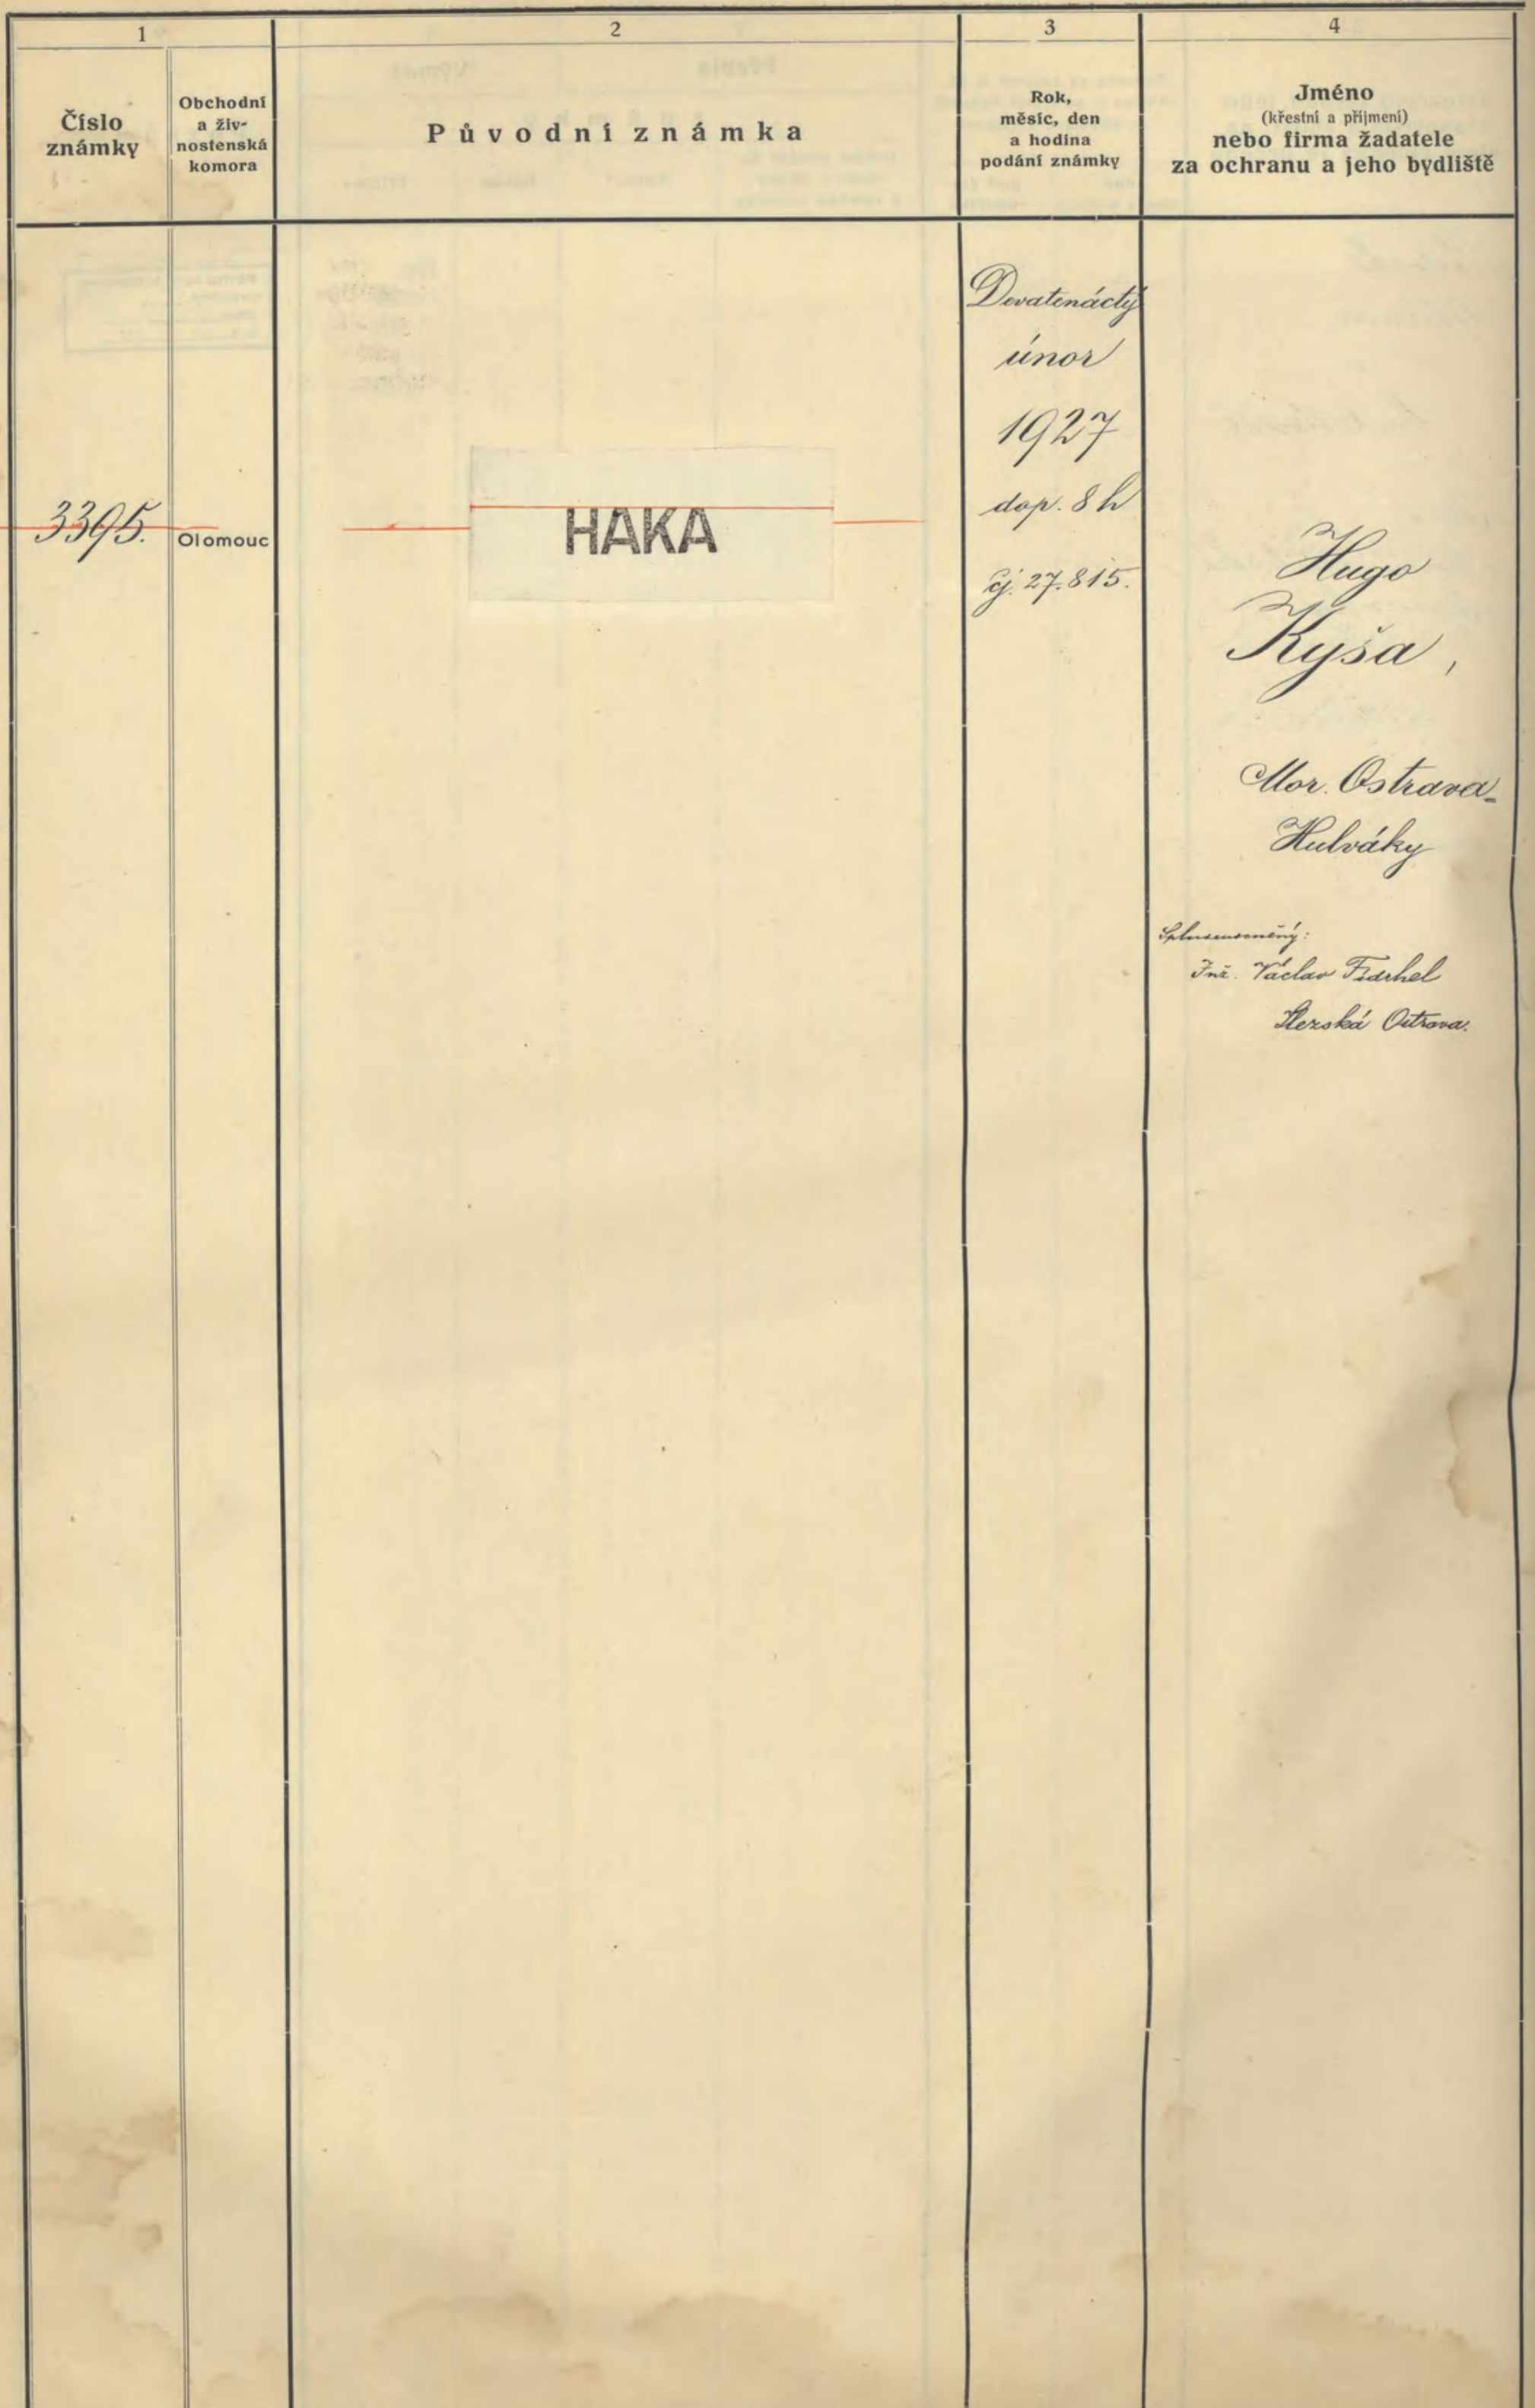 1
2
3
4
Číslo
známky
Obchodní
a živ-
nostenská
komora
Původní známka
Rok,
měsíc, den
a hodina
podání známky
Jméno
(křestní a příjmení)
nebo firma žadatele
za ochranu a jeho bydliště
3395.
Olomouc
HAKA
Devatenáctý
únor
1927
dop. 8 h
čj. 27.815.
Hugo
Kyša,
Mor. Ostrava-
Hulváky
Inž. Václav
Slezská Ostrava.